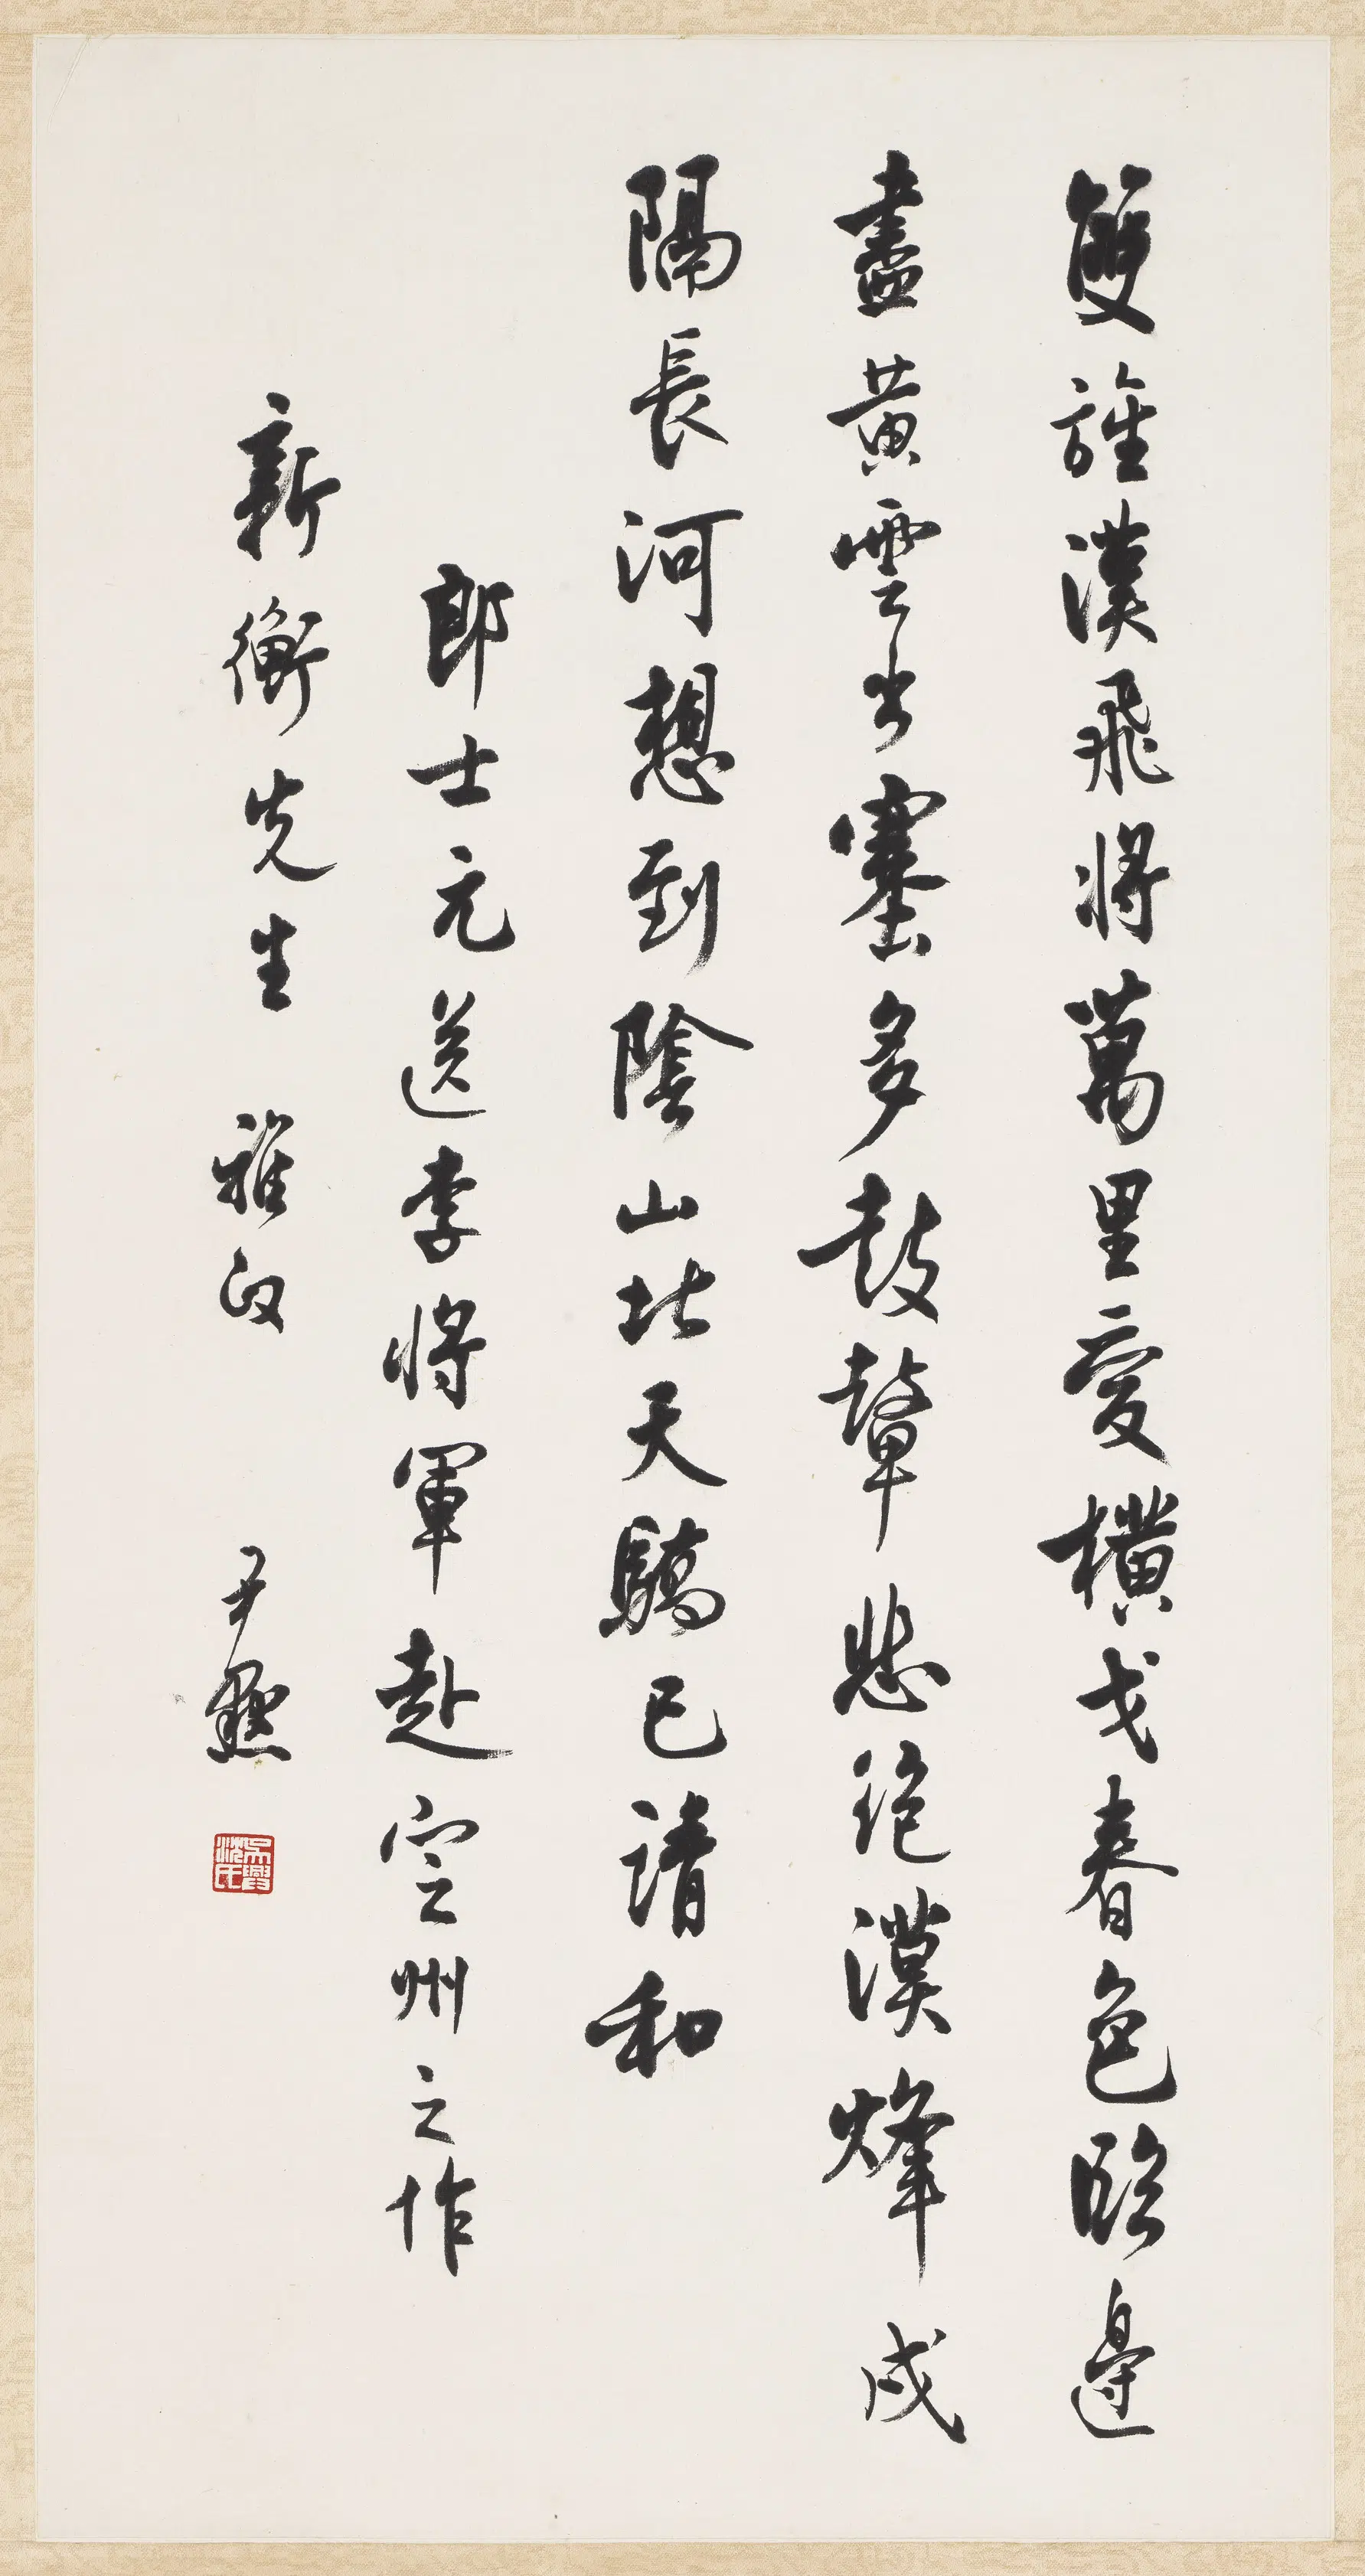 雙旌漢飛將萬里愛橫戈春色臨邊
盡黃雲出塞多鼓鼙悲絕漠烽戍
隔長河想到陰山北天驕已請和
郎士元送李將軍赴定州之作
新衡先生 雅政 尹默
吳興沈氏